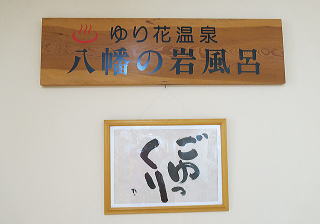 ♨ ゆり花温泉
八幡の岩風呂
ごゆっ
くり